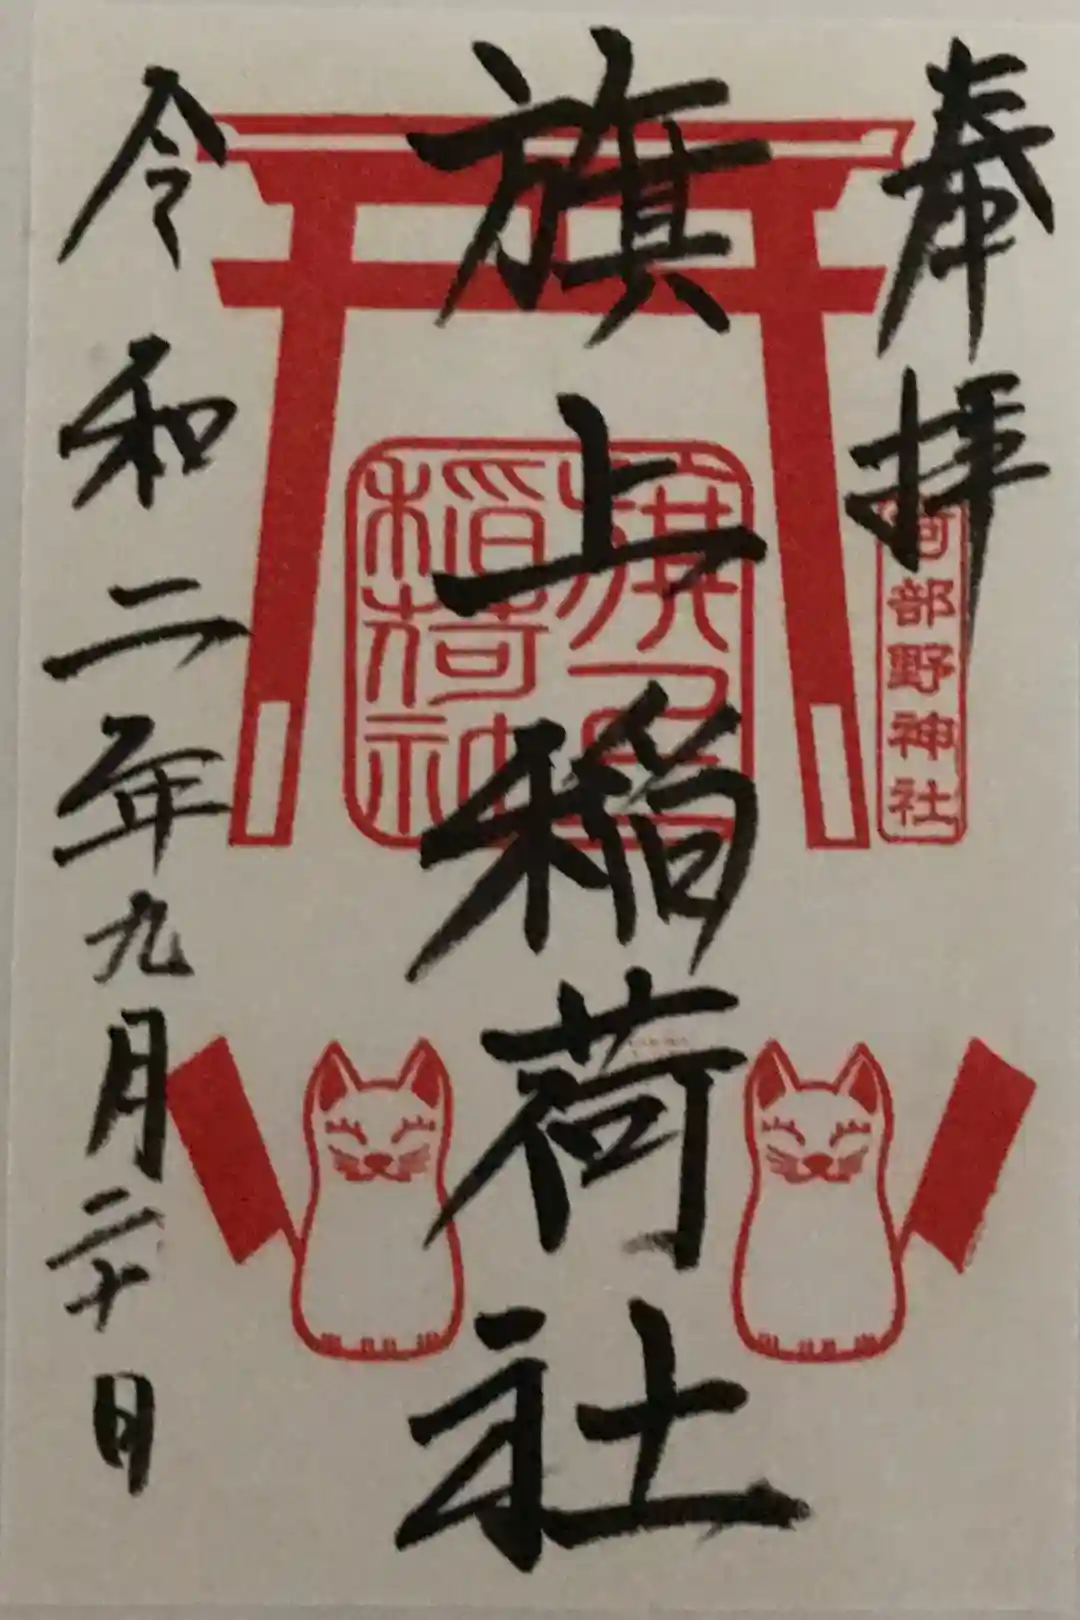 奉拝
阿部野神社
旗上稲荷社
稲荷
令和二年九月二十日